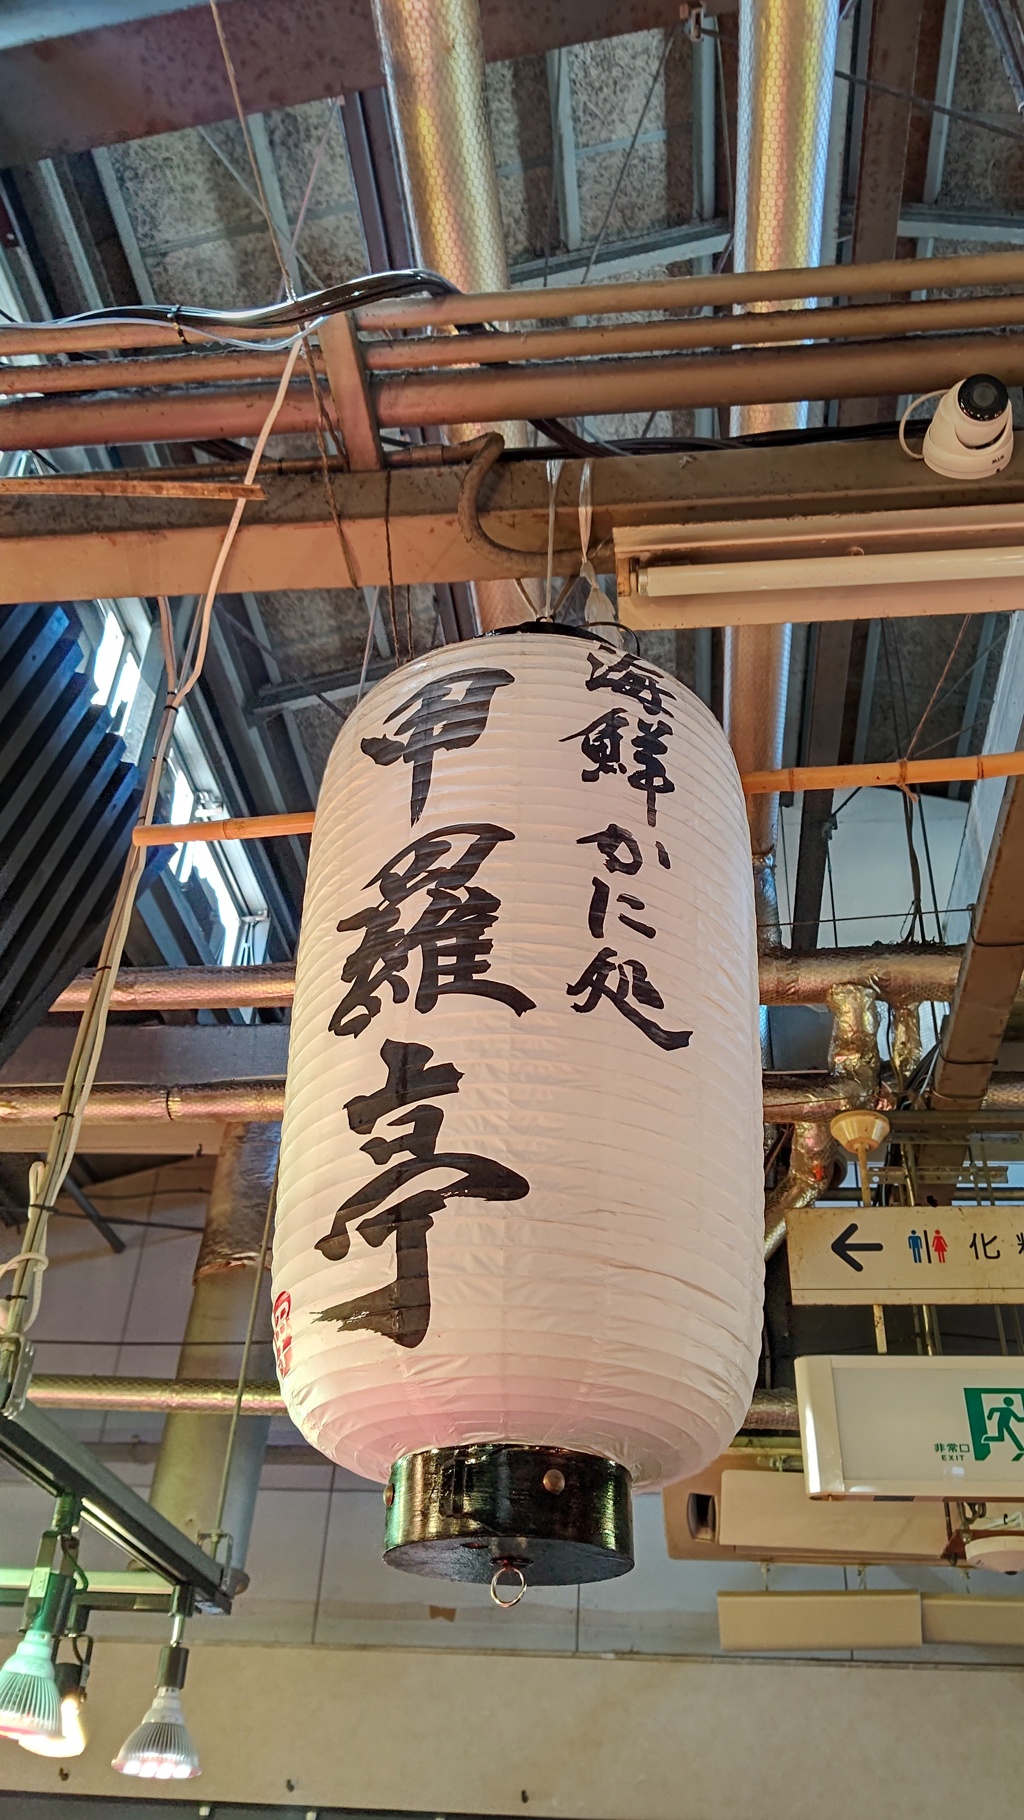 海鮮かに処
甲羅亭
化
非常口
EXIT